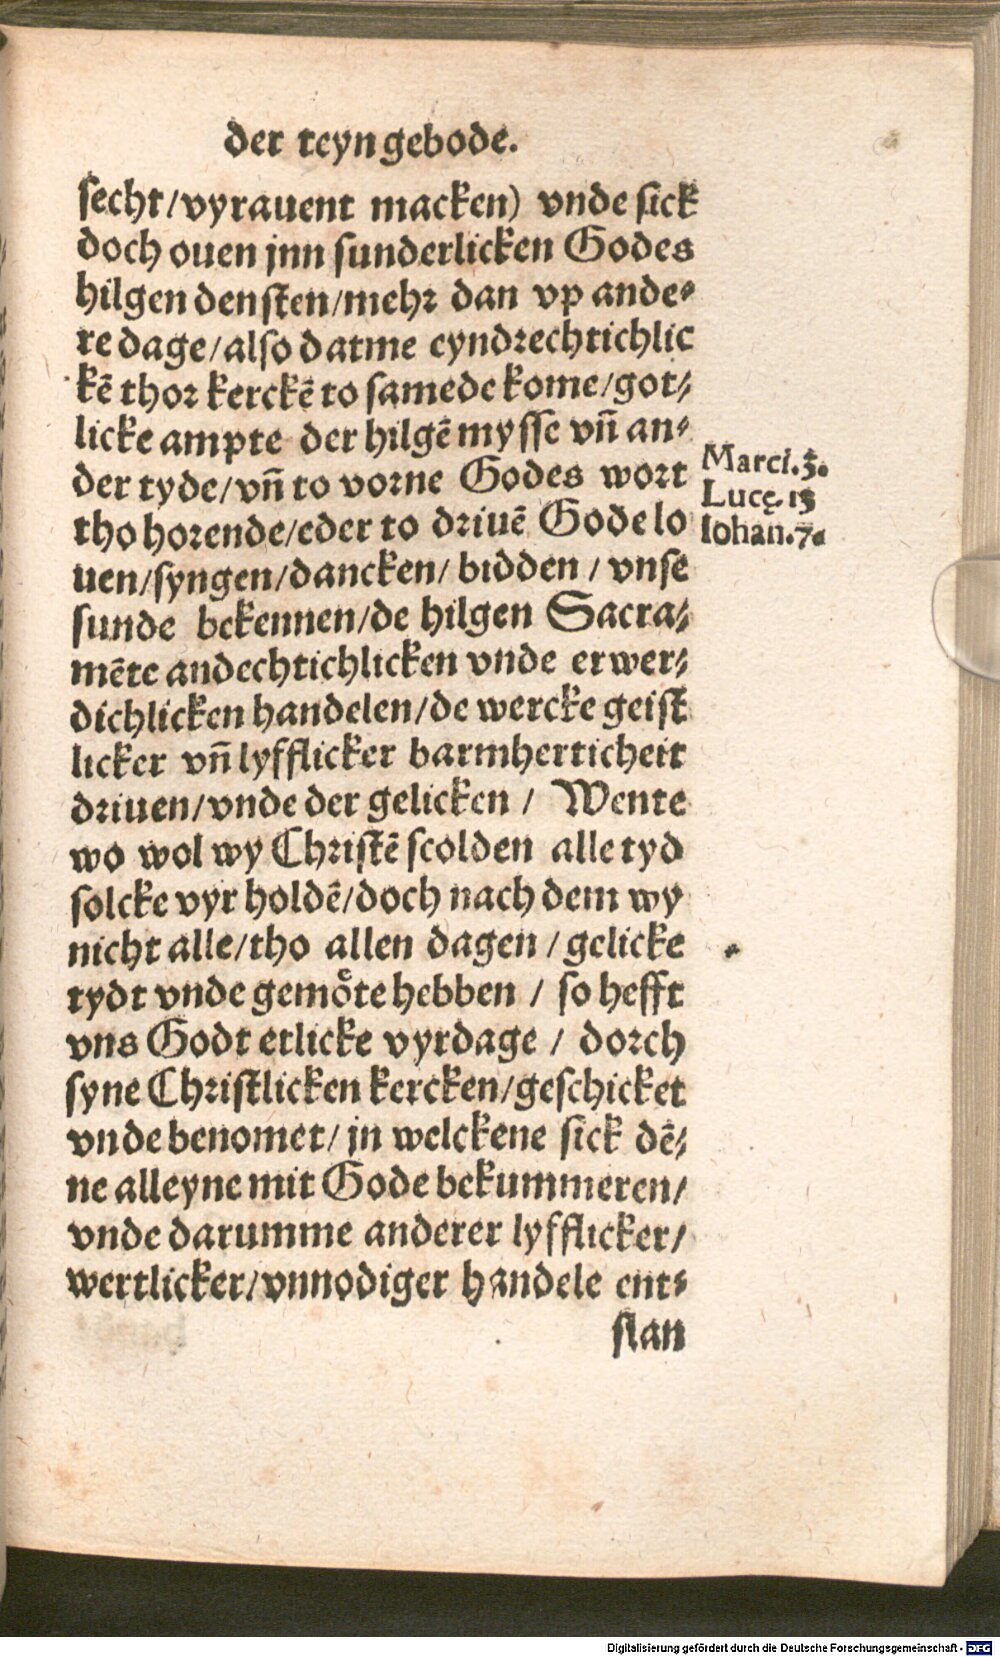 der teyn gebode.
secht/vyrauent macken) vnde sick
doch ouen jnn sunderlicken Godes
hilgen densten/mehr dan vp ande-
re dage/also datme eyndrechtichlic
kē thor kerckē to samede kome/got-
licke ampte der hilgē mysse vn̄ an-
der tyde/vn̄ to vorne Godes wort
tho horende/eder to driuē Gode lo
uen/syngen/dancken/bidden/vnse
sunde bekennen/de hilgen Sacra-
mēte andechtichlicken vnde erwer-
dichlicken handelen/de wercke geist
licker vn̄ lyfflicker barmherticheit
driuen/vnde der gelicken/ Wente
wo wol wy Christē scolden alle tyd
solcke vyr holdē/doch nach dem wy
nicht alle/tho allen dagen/gelicke
tydt vnde gemoͤte hebben/ so hefft
vns Godt etlicke vyrdage/ dorch
syne Christlicken kercken/geschicket
vnde benomet/jn welckene sick dē-
ne alleyne mit Gode bekummeren/
vnde darumme anderer lyfflicker/
wertlicker/vnnodiger handele ent-
slan
Marci.3.
Lucę.13
Iohan.7.
Digitalisierung gefördert durch die Deutsche Forschungsgemeinschaft - DFG